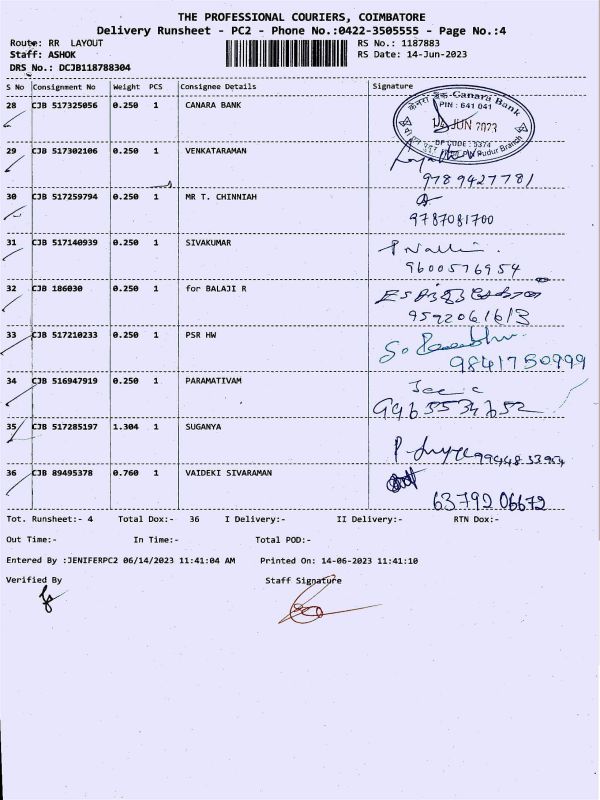 THE PROFESSIONAL COURIERS, COIMBATORE
Delivery Runsheet - PC2 - Phone No.:0422-3505555 - Page No.:4
Route: RR LAYOUT
RS No.: 1187883
Staff: ASHOK
RS Date: 14-Jun-2023
DRS No.: DCJB118788304
S No Consignment No Weight PCS Consignee Details Signature
28 CJB 517325056 0.250 1 CANARA BANK
केनरा बैंक Canara Bank
PIN : 641 041
14 JUN 2023
DP CODE : 5374
Pudur Branch
29 CJB 517302106 0.250 1 VENKATARAMAN
9789427781
30 CJB 517259794 0.250 1 MR T. CHINNIAH
9787081700
31 CJB 517140939 0.250 1 SIVAKUMAR
9600576954
32 CJB 186030 0.250 1 for BALAJI R
9592061613
33 CJB 517210233 0.250 1 PSR HW
9841750999
34 CJB 516947919 0.250 1 PARAMATIVAM
35 CJB 517285197 1.304 1 SUGANYA
36 CJB 89495378 0.760 1 VAIDEKI SIVARAMAN
63792 06672
Tot. Runsheet:- 4 Total Dox:- 36 I Delivery:- II Delivery:- RTN Dox:-
Out Time:- In Time:- Total POD:-
Entered By :JENIFERPC2 06/14/2023 11:41:04 AM Printed On: 14-06-2023 11:41:10
Verified By Staff Signature